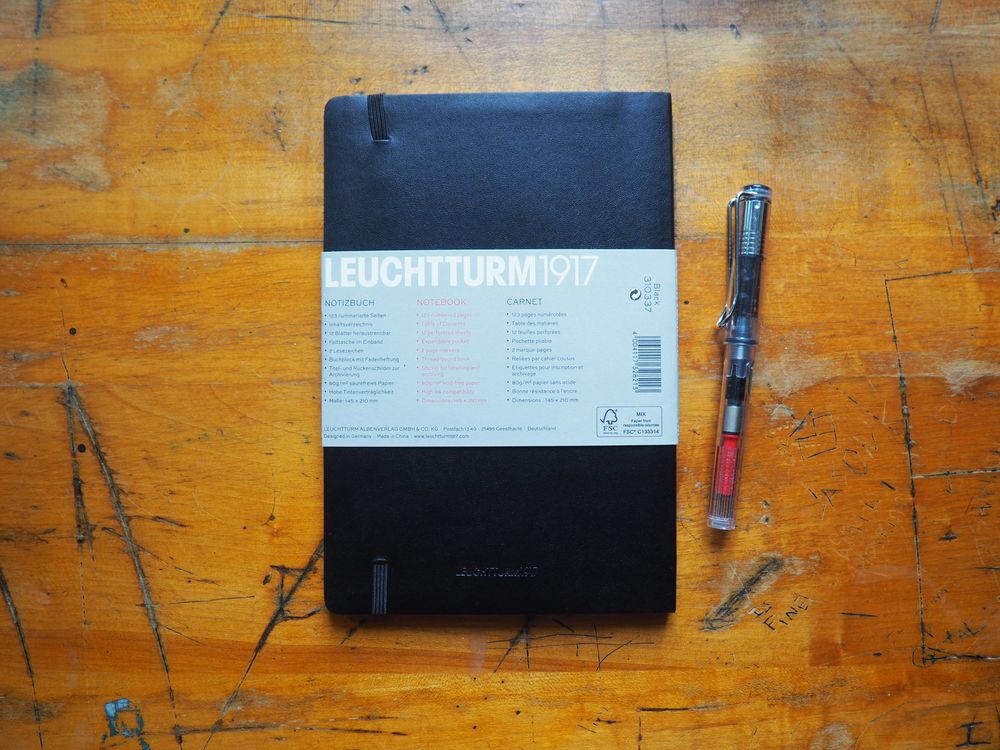 LEUCHTTURM1917
NOTIZBUCH
• 123 nummerierte Seiten
• Inhaltsverzeichnis
• 12 Blätter heraustrennbar
• Falttasche im Einband
• 2 Lesezeichen
• Buchblock mit Fadenheftung
• Titel- und Rückenschilder zur
Archivierung
• 80g/m² säurefreies Papier
• Hohe Tintenverträglichkeit
• Maße: 145 x 210 mm
NOTEBOOK
• 123 numbered pages
• Table of Contents
• 12 perforated sheets
• Expandable pocket
• 2 page markers
• Thread bound book
• Sticker for labeling and
archiving
• 80g/m² acid-free paper
• High ink compatibility
• Dimensions: 145 x 210 mm
CARNET
• 123 pages numérotées
• Table des matières
• 12 feuilles perforées
• Pochette pliable
• 2 marque-pages
• Reliées par cahier cousus
• Etiquettes pour inscription et
archivage
• 80g/m² papier sans acide
• Bonne résistance à l'encre
• Dimensions : 145 x 210 mm
Black
310337
4 004117 328213
FSC
MIX
Paper from
responsible sources
FSC® C133314
LEUCHTTURM ALBENVERLAG GMBH & CO. KG · Postfach 1340 · 21495 Geesthacht · Deutschland
Designed in Germany · Made in China · www.leuchtturm1917.com
LEUCHTTURM1917